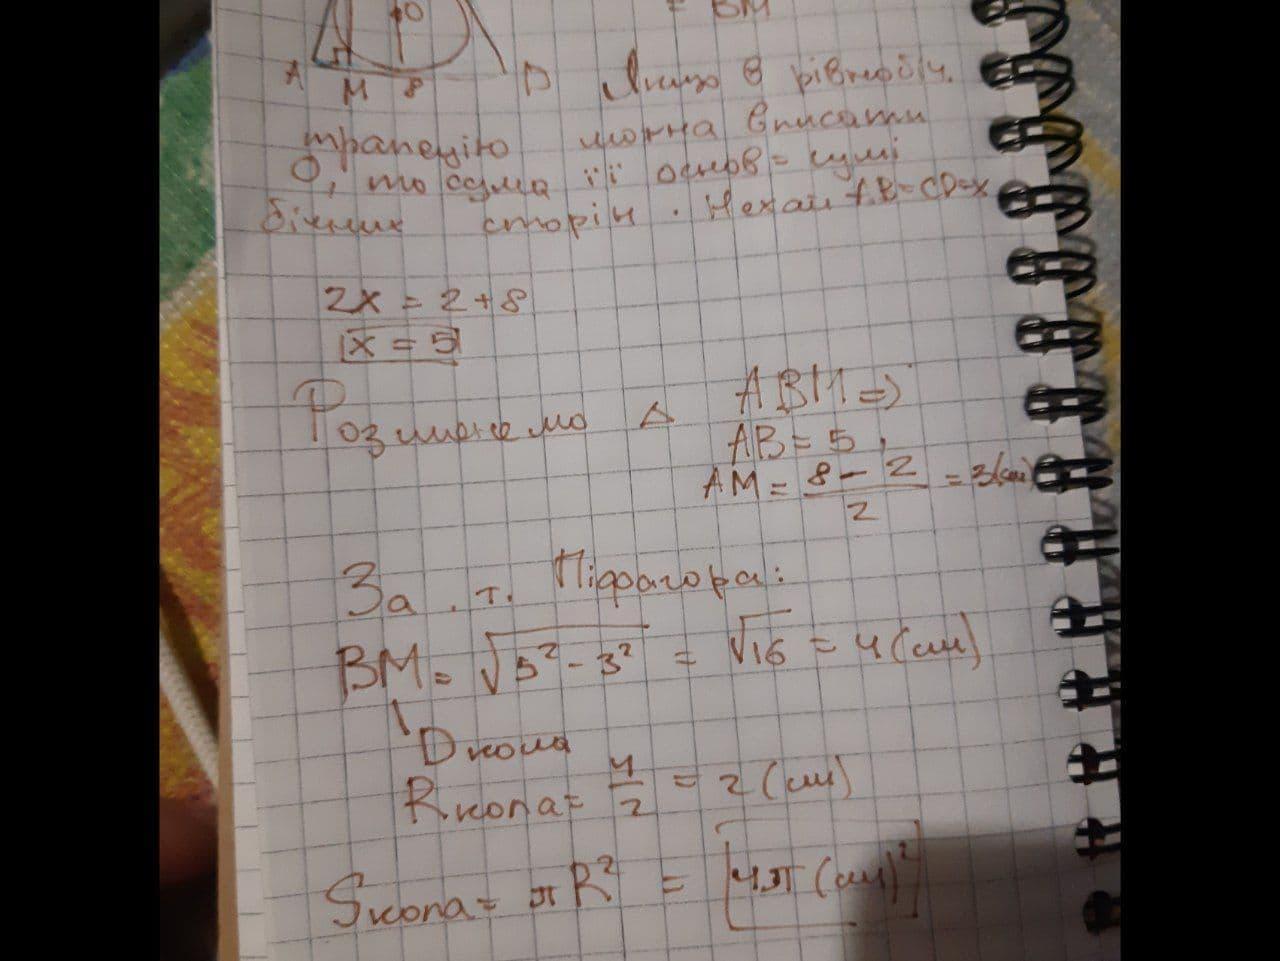 = BM
O
A M 8 D Якщо в рівнобіч.
трапецію можна вписати
O, то сума її основ = сумі
бічних сторін. Нехай AB=CD=x
2x = 2+8
x = 5
Розглянемо △ ABM =>
AB = 5,
AM = \frac{8-2}{2} = 3(см)
За т. Піфагора:
BM = √(5² - 3²) = √16 = 4 (см)
D кола
R кола = \frac{4}{2} = 2 (см)
S кола = πR² = 4π (см)²